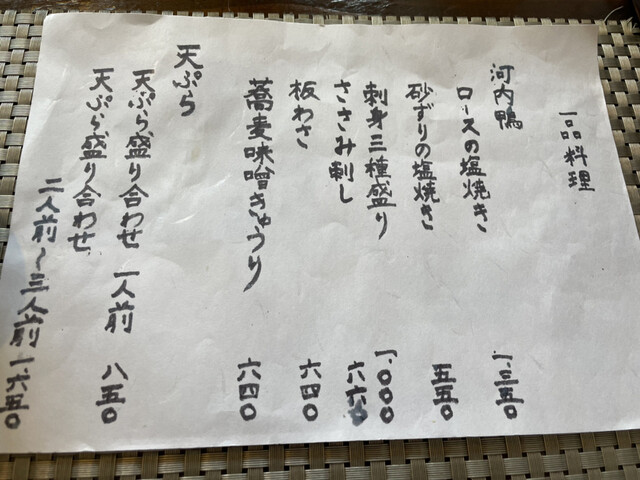 一品料理
河内鴨
ロースの塩焼き 一、三五〇
砂ずりの塩焼き 五五〇
刺身三種盛り 一、〇〇〇
ささみ刺し 六六〇
板わさ 六四〇
蕎麦味噌きゅうり 六四〇
天ぷら
天ぷら盛り合わせ 一人前 八五〇
天ぷら盛り合わせ
二人前〜三人前 一六五〇